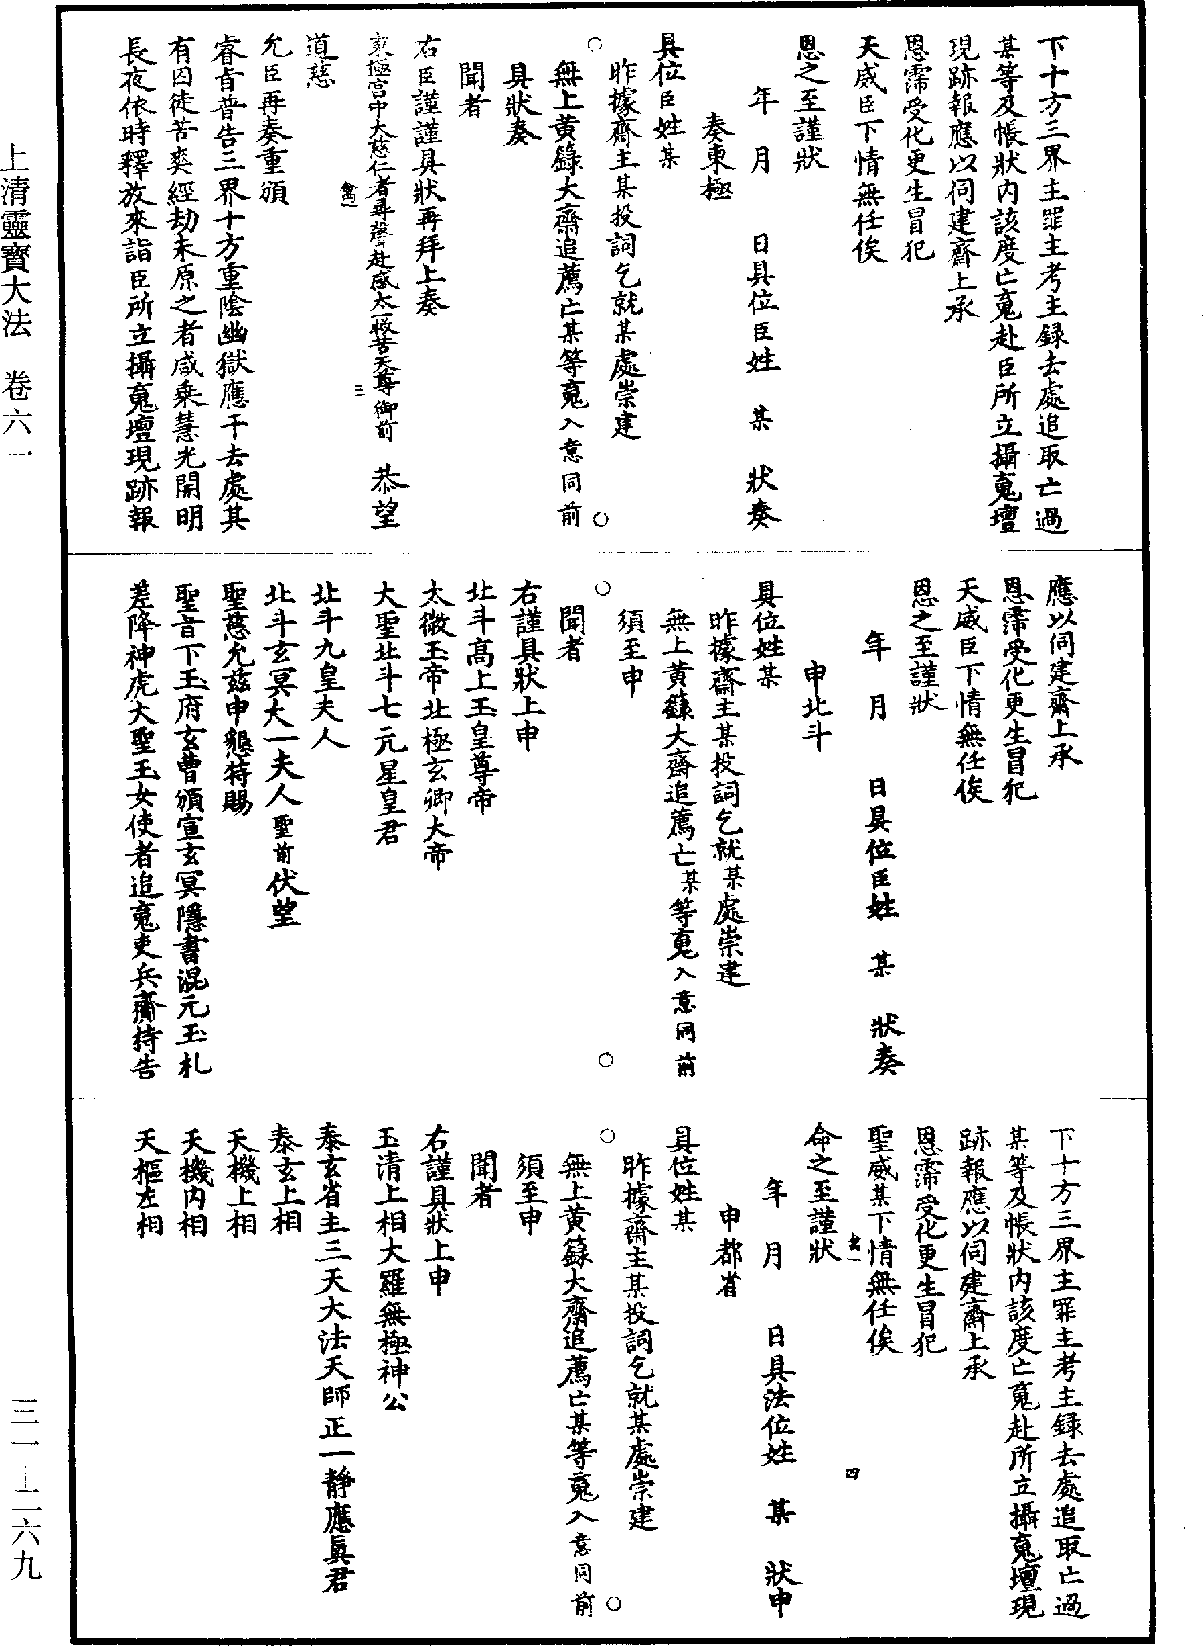 下十方三界主罪主考主録去處追取亡過
某等及帳狀内該度亡䰟赴臣所立攝䰟壇
現跡報應以伺建齋上承
恩霈受化更生冒犯
天威臣下情無任俟
恩之至謹狀
年 月 日具位臣姓 某 狀奏
奏東極
具位臣姓某
昨據齋主某投詞乞就某處崇建
○ ○
無上黄籙大齋追薦亡某等䰟入意同前
具狀奏
聞者
右臣謹謹具狀再拜上奏
東極宫中大慈仁者尋聲赴感太一救苦天尊御前 恭望
三
道慈
允臣再奏重頒
睿旨普告三界十方重陰幽獄應干去處其
有囚徒苦爽經劫未原之者咸乘慧光開明
長夜依時釋放來詣臣所立攝䰟壇現跡報
應以伺建齋上承
恩霈受化更生冒犯
天威臣下情無任俟
恩之至謹狀
年 月 日具位臣姓 某 狀奏
申北斗
具位姓某
昨據齋主某投詞乞就某處崇建
無上黄籙大齋追薦亡某等䰟入意同前
須至申
○ ○
聞者
右謹具狀上申
北斗髙上玉皇尊帝
太微玉帝北極玄卿大帝
大聖北斗七元星皇君
北斗九皇夫人
北斗玄冥大一夫人聖前伏望
聖慈允兹申懇特賜
聖旨下玉府玄曹頒宣玄冥隱書混元玉札
差降神虎大聖玉女使者追䰟吏兵齎持告
下十方三界主罪主考主録去處追取亡過
某等及帳狀内該度亡䰟赴所立攝䰟壇現
跡報應以伺建齋上承
恩霈受化更生冒犯
聖威某下情無任俟
四
命之至謹狀
年 月 日具法位姓 某 狀申
申都省
具位姓某
昨據齋主某投詞乞就某處崇建
○ ○
無上黄籙大齋追薦亡某等䰟入意同前
須至申
聞者
右謹具狀上申
玉清上相大羅無極神公
泰玄省主三天大法天師正一靜應眞君
泰玄上相
天機上相
天機内相
天樞左相
上清靈寳大法 卷六一
三一—二六九